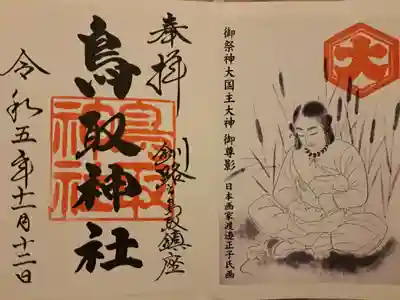 大
御祭神大国主大神 御尊影 日本画家渡邉正子氏画
奉拝
釧路
鎮座
鳥取神社
鳥取
神社
令和五年十一月十二日